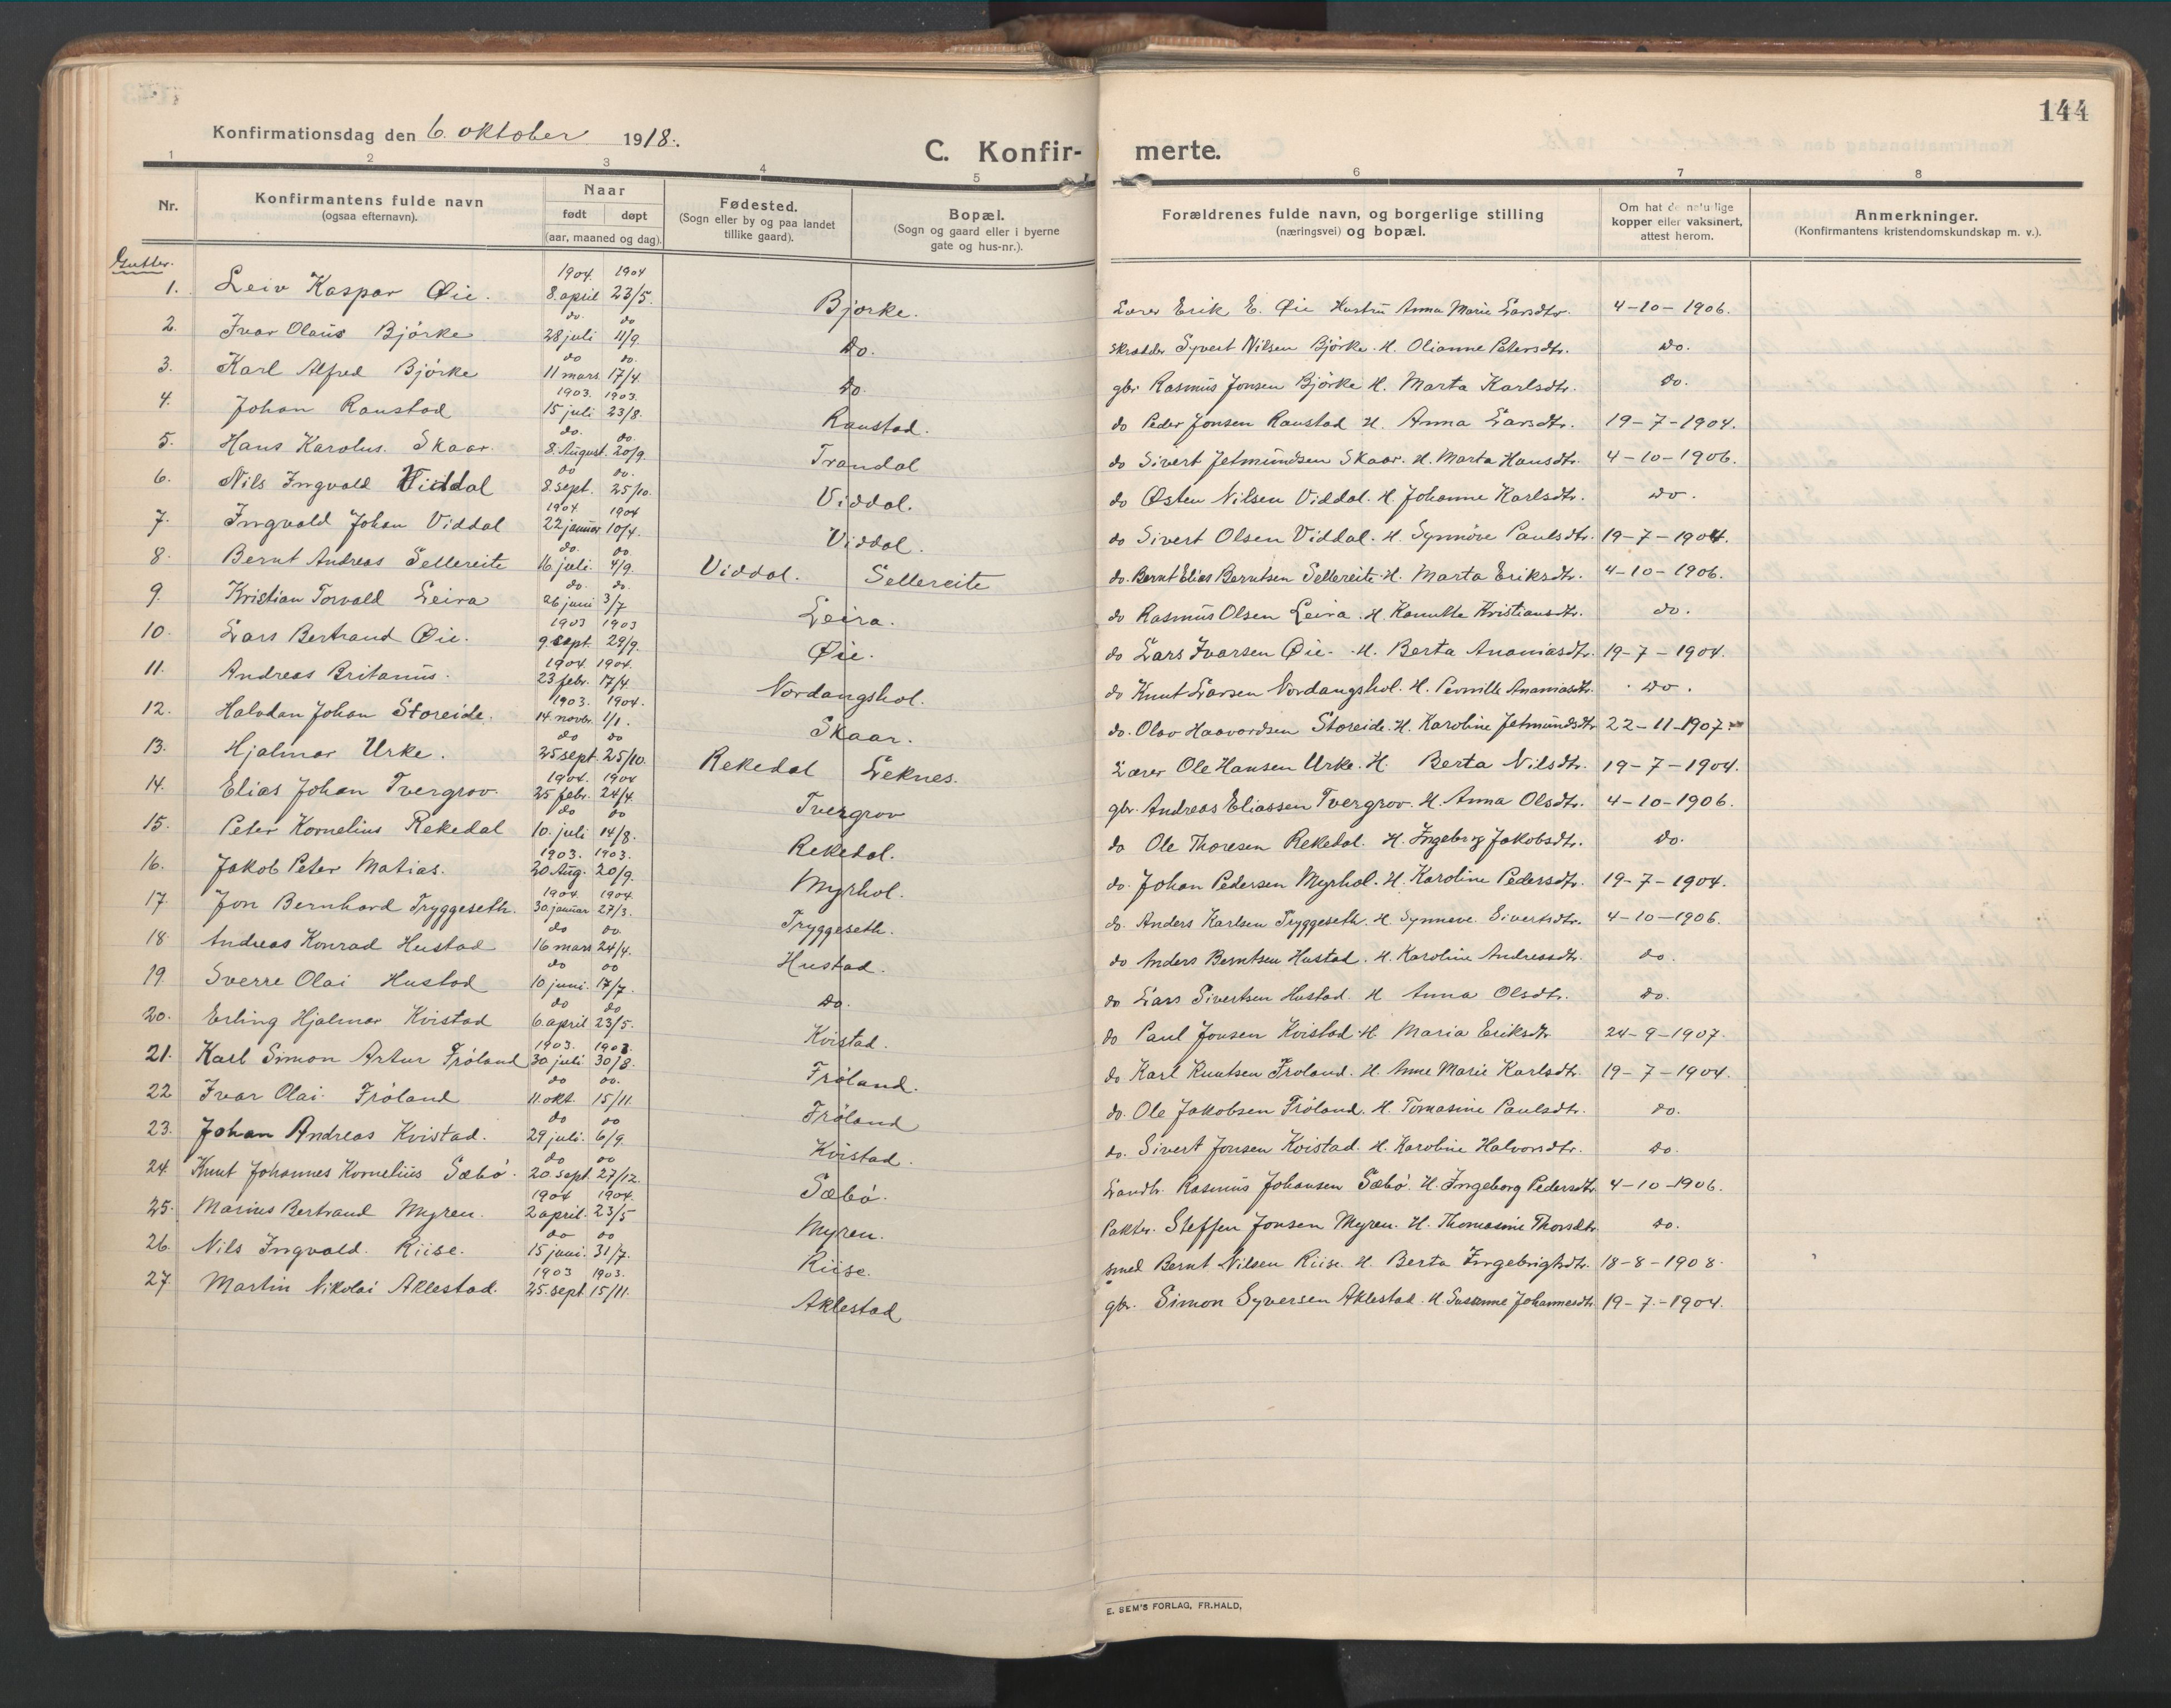 144
Konfirmationsdag den 6. oktober 1918.
C. Konfir-merte.
1 2 3 4 5 6 7 8
Nr. | Konfirmantens fulde navn (ogsaa efternavn). | Naar født døpt (aar, maaned og dag). | Fødested. (Sogn eller by og paa landet tillike gaard). | Bopæl. (Sogn og gaard eller i byerne gate og hus-nr.). | Forældrenes fulde navn, og borgerlige stilling (næringsvei) og bopæl. | Om hat de naturlige kopper eller vaksinert, attest herom. | Anmerkninger. (Konfirmantens kristendomskundskap m. v.).
Gutter.
1. Leiv Kaspar Øie. 1904 8. april 1904 23/5. Bjørke. Lærer Erik E. Øie Hustru Anna Marie Larsdtr. 4-10-1906.
2. Ivar Olaus Bjørke do. 28 juli do 11/9 do. Skrædder Syvert Nilsen Bjørke. H. Olianne Petersdtr. do.
3. Karl Alfred Bjørke do 11 mars do. 17/4. do. gbr. Rasmus Jonsen Bjørke H. Marta Karlsdtr. do.
4. Johan Raustad 1903. 15 juli 1903. 23/8. Raustad. do Peder Jonsen Raustad H. Anna Larsdtr. 19-7-1904.
5. Hans Karolus. Skaar. do. 8. August. do. 20/9. Trandal do Sivert Jetmundsen Skaar. H. Marta Hansdtr. 4-10-1906.
6. Nils Ingvald Viddal do 8. sept. do. 25/10. Viddal. do Østen Nilsen Viddal. H. Johanne Karlsdtr. do.
7. Ingvald Johan Viddal 1904 22 januar 1904 10/4. Viddal. do Sivert Olsen Viddal. H. Synnöve Paulsdtr. 19-7-1904.
8. Bernt Andreas Sellereite do. 16 juli. do. 4/9. Viddal. Sellereite do. Bernt Elias Berntsen Sellereite. H. Marta Eriksdtr. 4-10-1906.
9. Kristian Torvald Leira do. 26 juni do. 3/7 Leira. do Rasmus Olsen Leira. H. Kanutte Kristiansdtr. do.
10. Lars Bertrand Øie. 1903 9. sept. 1903 29/9. Øie. do Lars Ivarsen Øie. H. Berta Ananiasdtr. 19-7-1904.
11. Andreas Britanus. 1904. 23 febr. 1904. 17/4 Nordangshol. do Knut Larsen Nordangshol. H. Pernille Ananiasdtr. do.
12. Halvdan Johan Storeide. 1903. 14 novbr. 1904. 1/1. Skaar. do. Olav Haavardsen Storeide. H. Karoline Jetmundsdtr 22-11-1907.
13. Hjalmar Urke. do 25 sept. do 25/10. Rekedal Leknes. Lærer Ole Hansen Urke. H. Berta Nilsdtr. 19-7-1904.
14. Elias Johan Tvergrov. 1904. 25 febr. 1904 24/4. Tvergrov gbr. Andreas Eliassen Tvergrov. H. Anna Olsdtr. 4-10-1906.
15. Peter Kornelius Rekedal do 10. juli do 14/8. Rekedal. do Ole Thoresen Rekedal. H. Ingeborg Jakobsdtr. do.
16. Jakob Peter Matias. 1903. 20 Aug. 1903. 20/9. Myrhol. do. Johan Pedersen Myrhol. H. Karoline Pedersdtr. 19-7-1904.
17. Jon Bernhard Tryggeseth. 1904. 30. januar 1904. 27/3. Tryggeseth. do. Anders Karlsen Tryggeseth. H. Synneve. Sivertsdtr. 4-10-1906.
18 Andreas Konrad Hustad do 16 mars do. 24/4. Hustad. do Anders Berntsen Hustad. H. Karoline Andreasdtr. do.
19. Sverre Olai Hustad do 10 juni. do 17/7. do. do Lars Sivertsen Hustad. H Anna Olsdtr. do.
20. Erling Hjalmar Kvistad do 6. april do 23/5. Kvistad. do Paul Jonsen Kvistad. H. Maria Eriksdtr 24-9-1907.
21. Karl Simon Artur Fröland 1903. 30 juli 1903. 30/8. Fröland. do Karl Knutsen Froland. H. Anne Marie Karlsdtr. 19-7-1904.
22 Ivar Olai. Fröland do 11. okt. do. 15/11. Fröland do. Ole Jakobsen Fröland. H. Tomasine Paulsdtr. do.
23. Johan Andreas Kvistad. do 29 juli. do 6/9. Kvistad. do. Sivert Jonsen Kvistad. H. Karoline Halvorsdtr. do.
24. Knut Johannes Kornelius Sæbö. do 20. sept. do 27/12. Sæbö. Landh. Rasmus Johansen Sæbö. H. Ingeborg Pedersdtr 4-10-1906.
25. Marius Bertrand Myren. 1904 2 april. 1904. 23/5 Myren. Pakter. Steffen Jonsen Myren. H. Thomasine Thorsdtr. do.
26. Nils Ingvald. Riise. do 15 juni. do 31/7. Riise. smed Bernt Nilsen Riise. H. Berta Ingebrigtsdtr. 18-8-1908.
27. Martin Nikolai Aklestad. 1903 25. sept 1903. 15/11. Aklestad gbr. Simon Syversen Aklestad. H. Susanne Johannesdtr. 19-7-1904.
E. SEM'S FORLAG, FR.HALD,